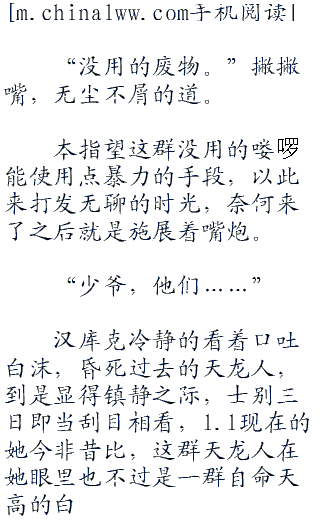 [m.china1ww.com手机阅读|
“没用的废物。”撇撇
嘴，无尘不屑的道。
本指望这群没用的喽啰
能使用点暴力的手段，以此
来打发无聊的时光，奈何来
了之后就是施展着嘴炮。
“少爷，他们……”
汉库克冷静的看着口吐
白沫，昏死过去的天龙人，
到是显得镇静之际，士别三
日即当刮目相看，1.1现在的
她今非昔比，这群天龙人在
她眼里也不过是一群自命天
高的白